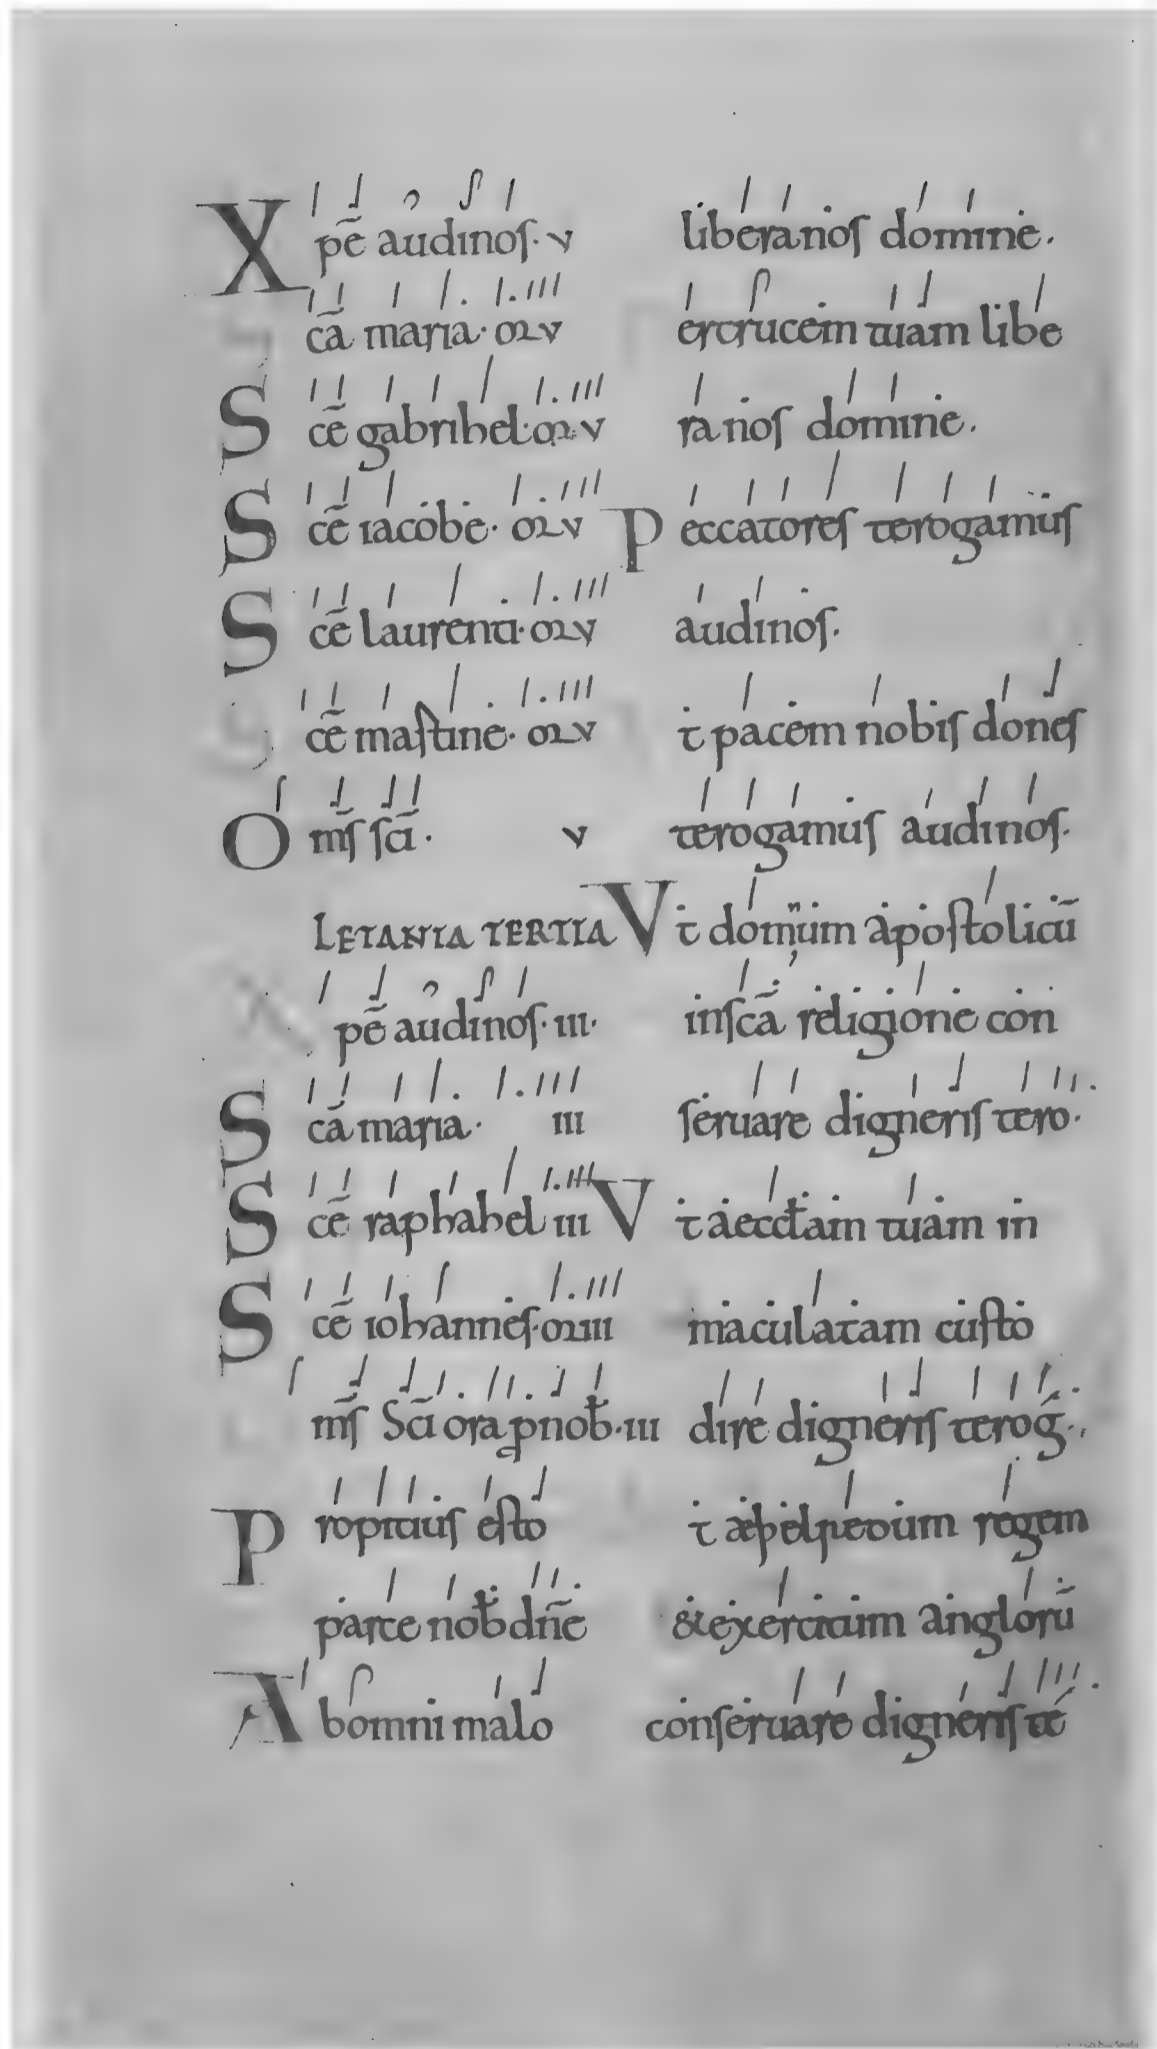 Xpē audinos· v
cā maria· or̄ v
Scē gabrihel· or̄ v
Scē iacobe· or̄ v
Scē laurenti· or̄ v
cē martine· or̄ v
Om̄s sc̄i· v
LETANIA TERTIA
pē audinos· iii·
Scā maria· iii
Scē raphahel iii
Scē iohannes· or̄ iii
m̄s Sc̄i ora ꝓ nob̄· iii
Propitius esto
parce nob̄ dn̄e
Ab omni malo
libera nos domine.
er crucem tuam libe
ra nos domine.
Peccatores te rogamus
audi nos.
t pacem nobis dones
te rogamus audi nos.
Ut domnum apostolicū
in scā religione con
seruare digneris te ro·
Ut aeccłam tuam in
maculatam custo
dire digneris te roḡ·,
t æþelredum regem
&exercitum anglorū
conseruare digneris te